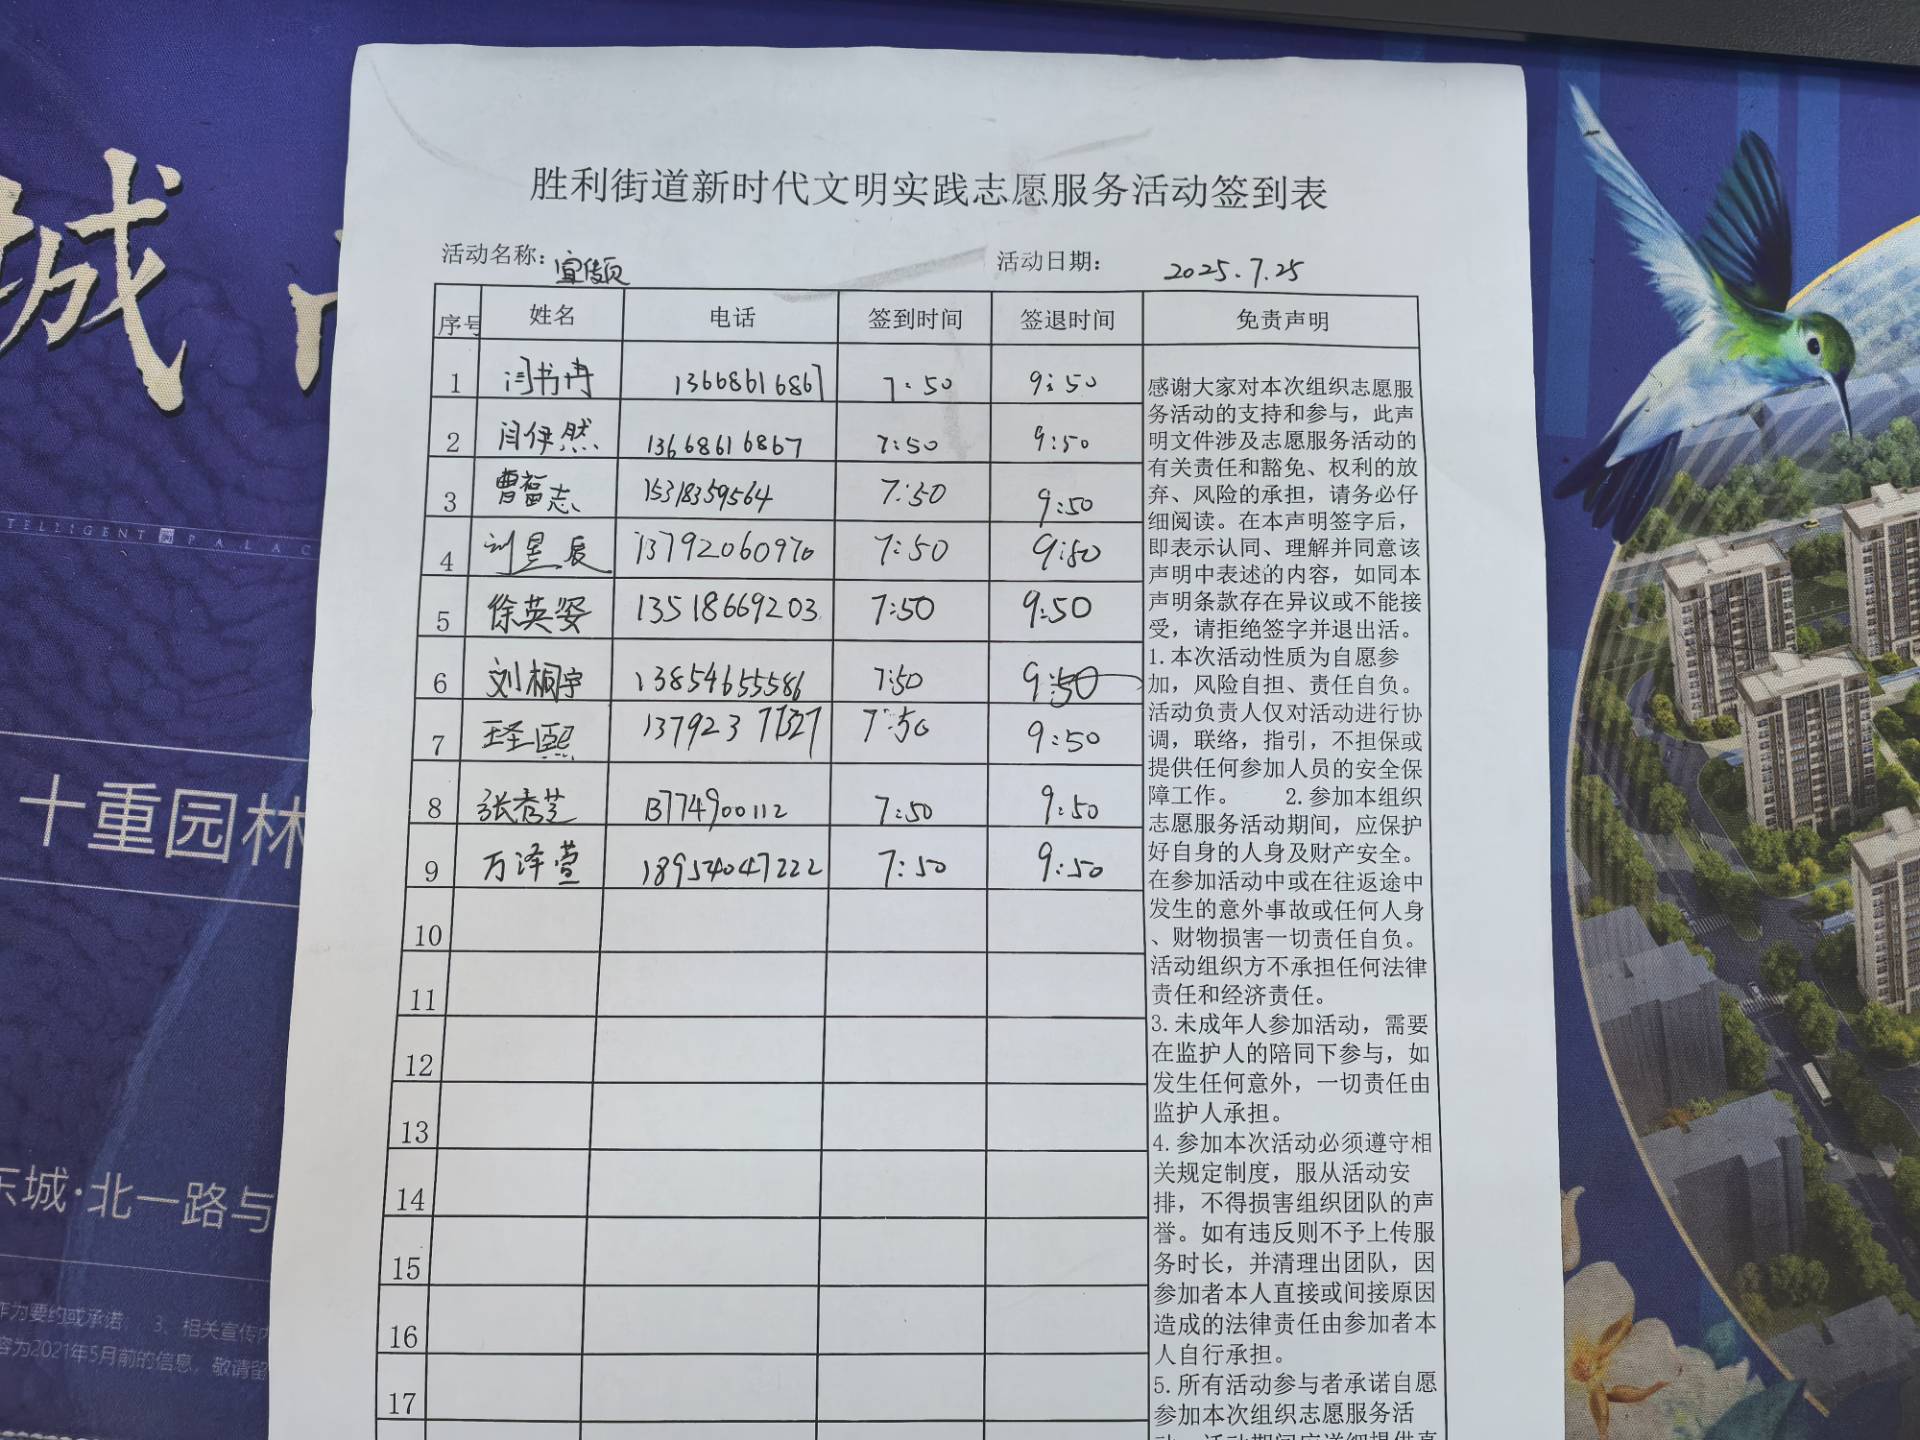 城
TELLIGENT PALAC
十重园林
东城·北一路与
作为要约或承诺; 3、相关宣传内
容为2021年5月前的信息,敬请留
胜利街道新时代文明实践志愿服务活动签到表
活动名称: 宣传页 活动日期: 2025.7.25
序号 姓名 电话 签到时间 签退时间 免责声明
1 闫书冉 13668616867 7:50 9:50
2 闫伊然 13668616867 7:50 9:50
3 曹智志 15318359564 7:50 9:50
4 刘昱辰 13792060970 7:50 9:50
5 徐英姿 13518669203 7:50 9:50
6 刘桐宇 13854655586 7:50 9:50
7 王圣熙 13792377327 7:50 9:50
8 张秀芝 13774900112 7:50 9:50
9 万泽萱 18954047222 7:50 9:50
10
11
12
13
14
15
16
17
感谢大家对本次组织志愿服
务活动的支持和参与,此声
明文件涉及志愿服务活动的
有关责任和豁免、权利的放
弃、风险的承担,请务必仔
细阅读。在本声明签字后,
即表示认同、理解并同意该
声明中表述的内容,如同本
声明条款存在异议或不能接
受,请拒绝签字并退出活。
1.本次活动性质为自愿参
加,风险自担、责任自负。
活动负责人仅对活动进行协
调,联络,指引,不担保或
提供任何参加人员的安全保
障工作。 2.参加本组织
志愿服务活动期间,应保护
好自身的人身及财产安全。
在参加活动中或在往返途中
发生的意外事故或任何人身
、财物损害一切责任自负。
活动组织方不承担任何法律
责任和经济责任。
3.未成年人参加活动,需要
在监护人的陪同下参与,如
发生任何意外,一切责任由
监护人承担。
4.参加本次活动必须遵守相
关规定制度,服从活动安
排,不得损害组织团队的声
誉。如有违反则不予上传服
务时长,并清理出团队,因
参加者本人直接或间接原因
造成的法律责任由参加者本
人自行承担。
5.所有活动参与者承诺自愿
参加本次组织志愿服务活